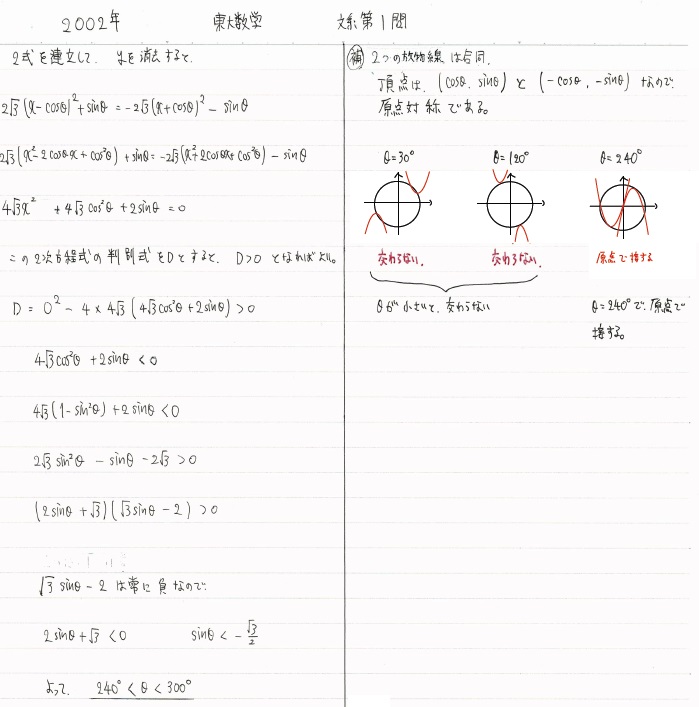 2002年 東大数学 文系第1問
2式を連立して、yを消去すると、
2√3(x-cosθ)²+sinθ = -2√3(x+cosθ)² - sinθ
2√3(x²-2cosθx+cos²θ)+sinθ = -2√3(x²+2cosθx+cos²θ) - sinθ
4√3x² + 4√3cos²θ + 2sinθ = 0
この2次方程式の判別式をDとすると、D>0となればよい。
D = 0² - 4×4√3(4√3cos²θ+2sinθ) > 0
4√3cos²θ + 2sinθ < 0
4√3(1-sin²θ) + 2sinθ < 0
2√3sin²θ - sinθ - 2√3 > 0
(2sinθ + √3)(√3sinθ - 2) > 0
√3sinθ - 2 は常に負なので、
2sinθ + √3 < 0 sinθ < -√3/2
よって、240° < θ < 300°
補 2つの放物線は合同。
頂点は、(cosθ, sinθ) と (-cosθ, -sinθ) なので、
原点対称である。
θ=30° θ=120° θ=240°
交わらない。 交わらない。 原点で接する
θが小さいと、交わらない θ=240°で、原点で
接する。